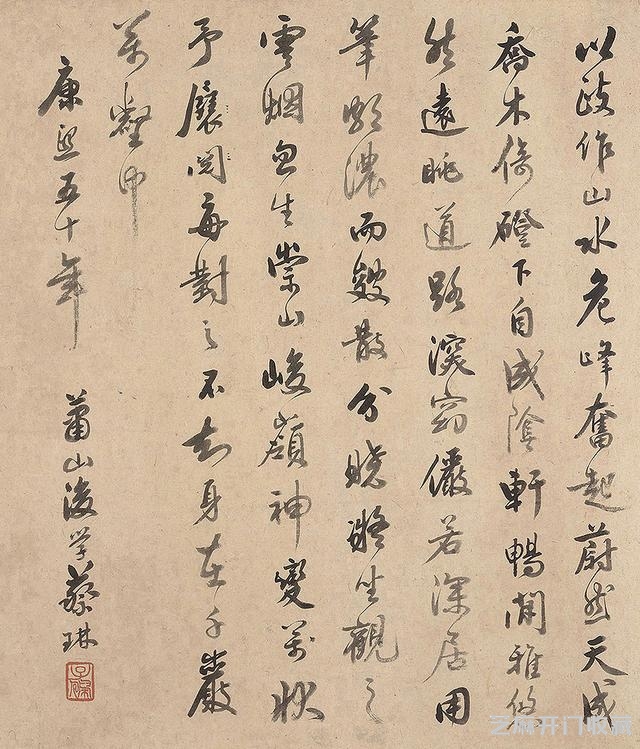 以作山水危峰奮起蔚然天成
喬木倚磴下自成陰軒暢閒雅悠
然遠眺道路深窈儼若深居用
筆頗濃而皴散分曉凝坐觀之
雲烟忽生崇山峻嶺神變萬狀
予展閱每對之不知身在千巖
萬壑中
康熙五十年 蕭山後學蔡琳
芝麻开门收藏